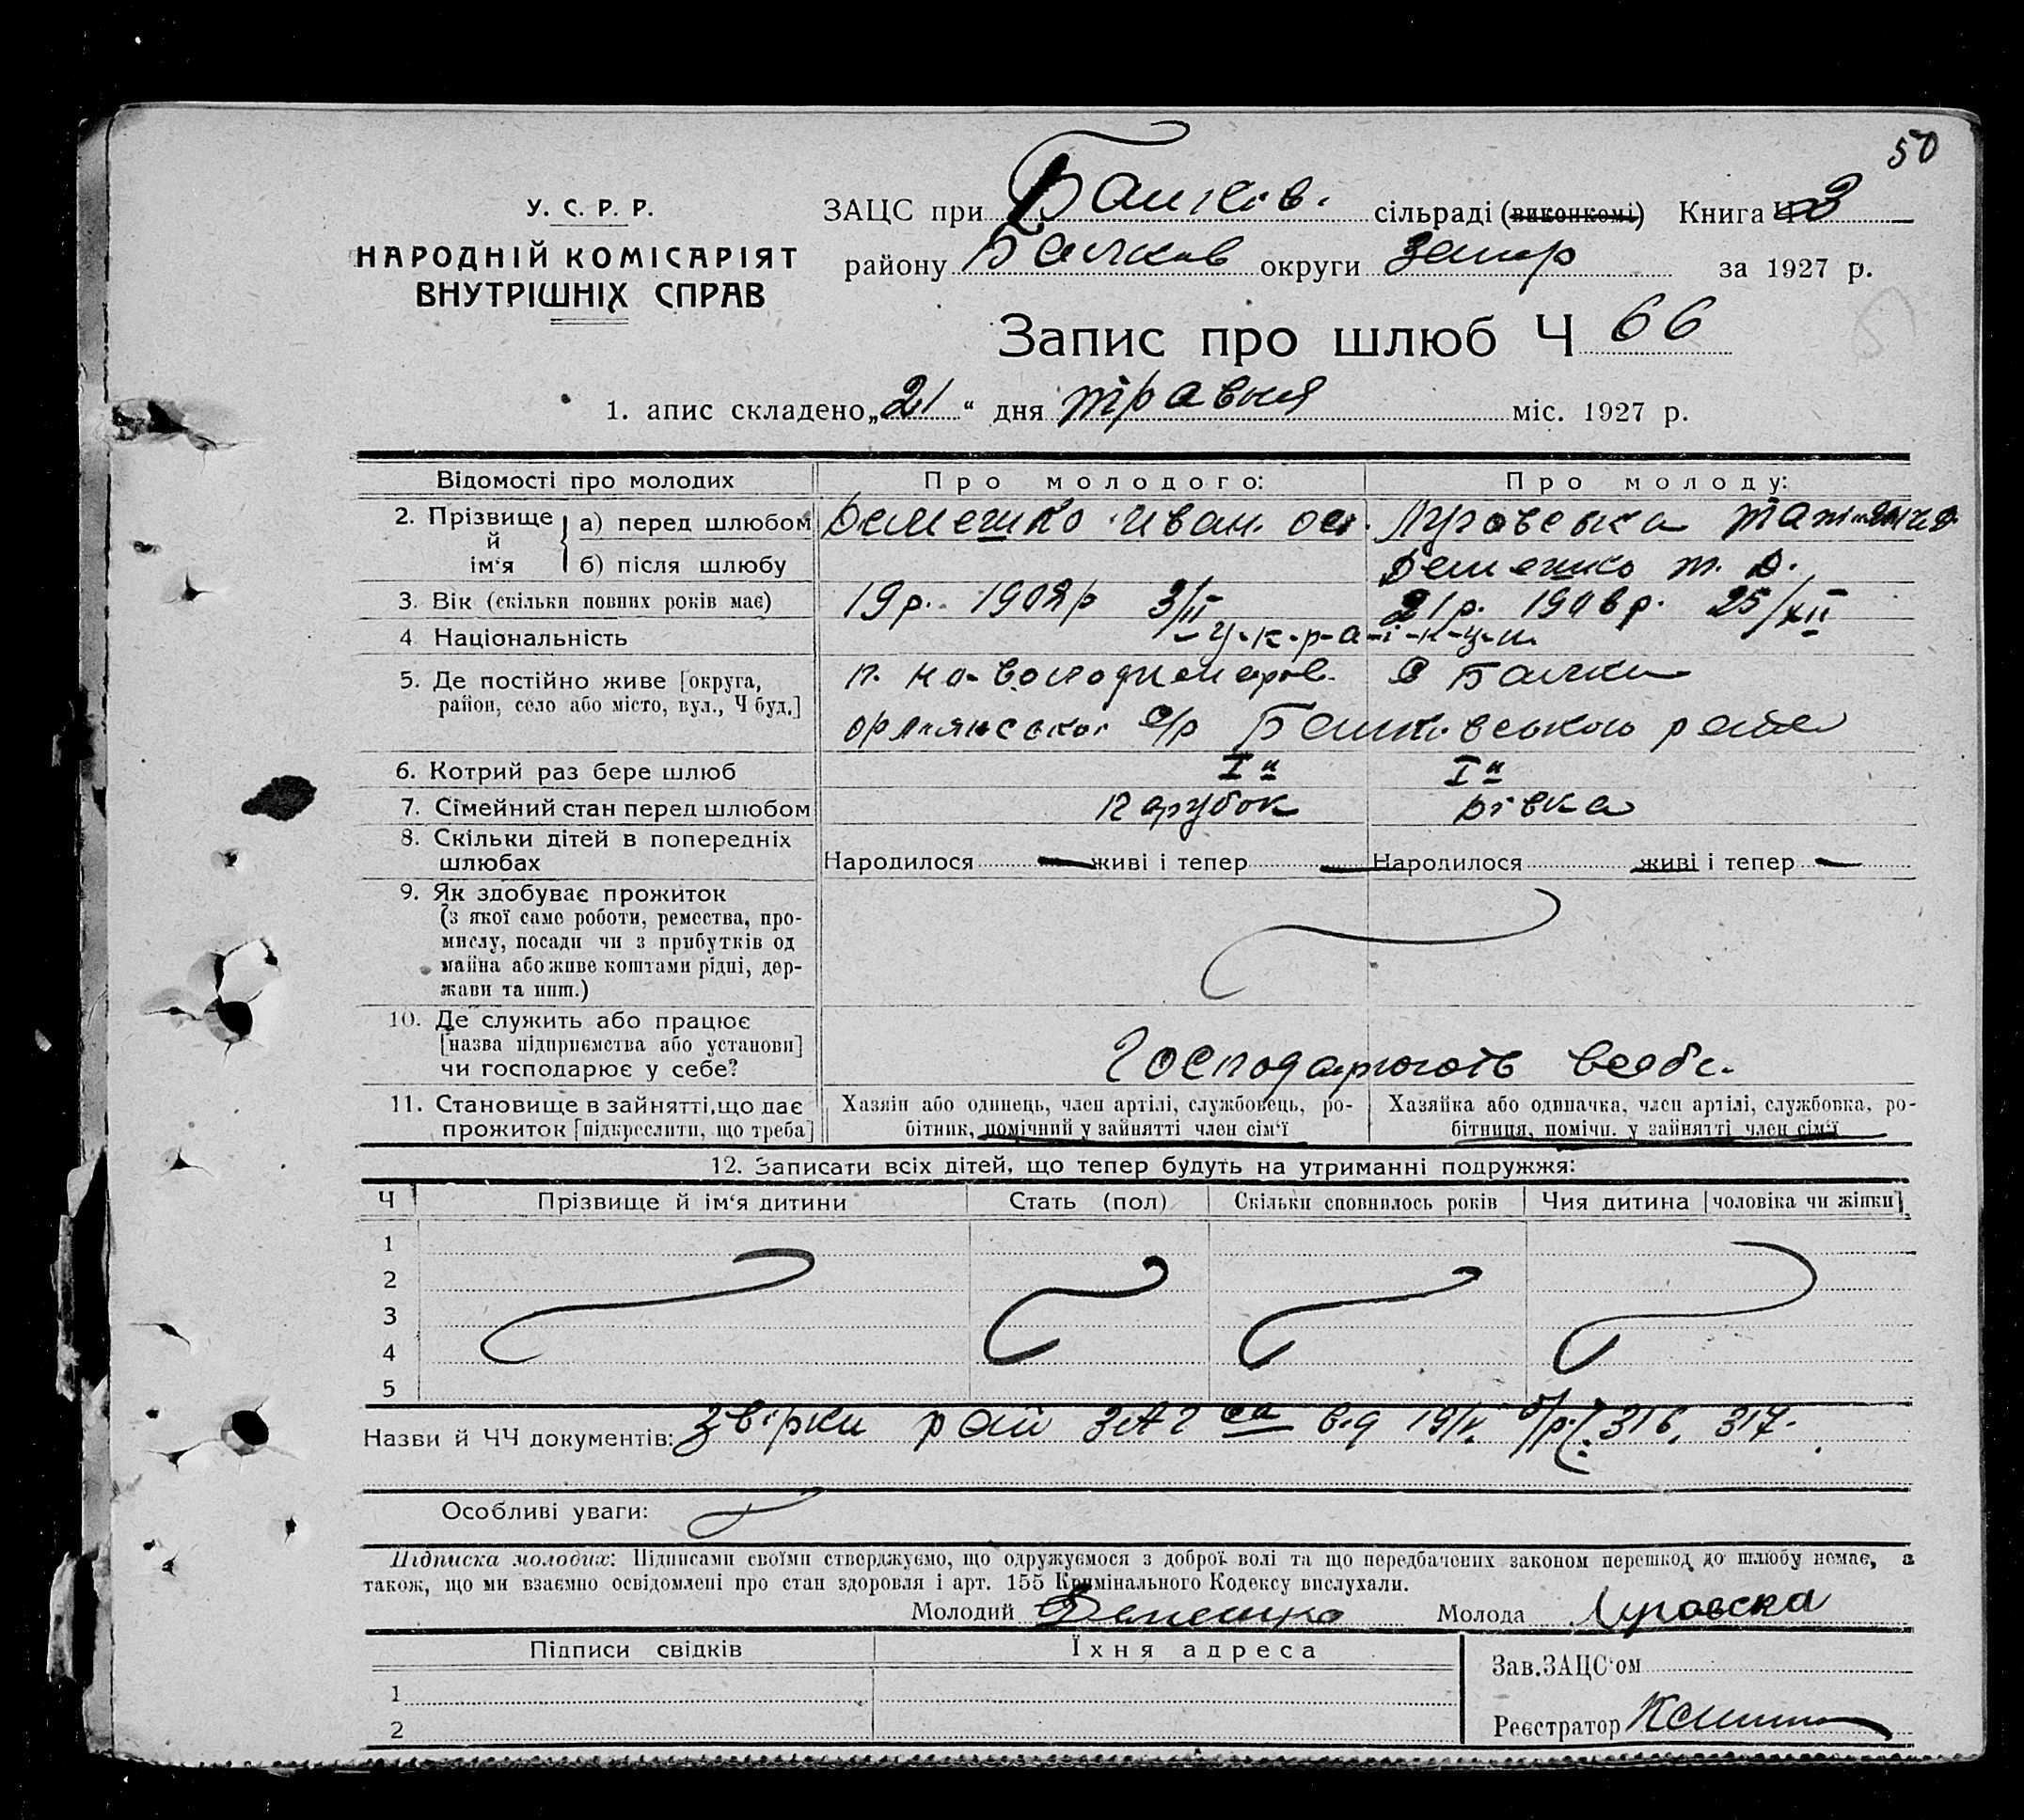 50
У. С. Р. Р.
НАРОДНІЙ КОМІСАРІЯТ
ВНУТРІШНІХ СПРАВ
ЗАЦС при Балков. сільраді (виконкомі) Книга Ч 3
району Балков округи Запор за 1927 р.
Запис про шлюб Ч 66
1. апис складено „21“ дня травня міс. 1927 р.
Відомості про молодих Про молодого: Про молоду:
2. Прізвище й ім‘я а) перед шлюбом Демешко Иван Луговська
б) після шлюбу Демешко Т. Д.
3. Вік (скільки повних років має) 19 р. 1908 р 3/II 21 р. 1906 р. 25/XII
4 Національність у-к-р-а-ї-н-ц-и
5. Де постійно живе [округа, район, село або місто, вул., Ч буд.] С Балки
с/р Балківського
6. Котрий раз бере шлюб І й І й
7. Сімейний стан перед шлюбом Парубок Дівка
8. Скільки дітей в попередніх шлюбах Народилося — живі і тепер — Народилося — живі і тепер —
9. Як здобуває прожиток
(з якої саме роботи, ремества, про-
мислу, посади чи з прибутків од
майна або живе коштами рідні, дер-
жави та инш.)
10. Де служить або працює
[назва підприємства або установи]
чи господарює у себе? Господарюють
11. Становище в зайнятті, що дає
прожиток [підкреслити, що треба]
Хазяін або одинець, член артілі, службовець, ро-
бітник, помічний у зайнятті член сім‘ї
Хазяйка або одиначка, член артілі, службовка, ро-
бітниця, помічн. у зайнятті член сім‘ї
12. Записати всіх дітей, що тепер будуть на утриманні подружжя:
Ч Прізвище й ім‘я дитини Стать (пол) Скільки сповнилось років Чия дитина [чоловіка чи жінки]
1
2
3
4
5
Назви й ЧЧ документів: ЗАГса від 316, 317.
Особливі уваги:
Підписка молодих: Підписами своїми стверджуємо, що одружуємося з доброї волі та що передбачених законом перешкод до шлюбу немає, а
також, що ми взаємно освідомлені про стан здоровля і арт. 155 Кримінального Кодексу вислухали.
Молодий Демешко Молода Луговска
Підписи свідків Їхня адреса
1
2
Зав.ЗАЦС‘ом
Реєстратор